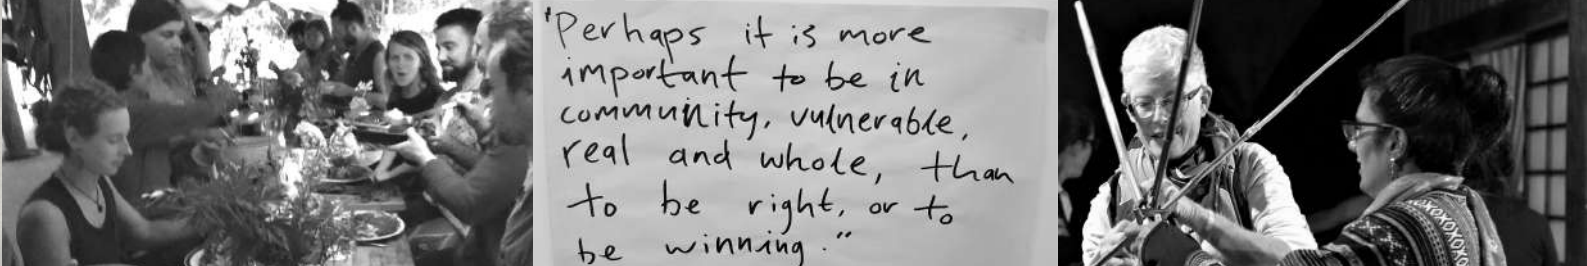 'Perhaps it is more
important to be in
community, vulnerable,
real and whole, than
to be right, or to
be winning."
XOXOXOXO